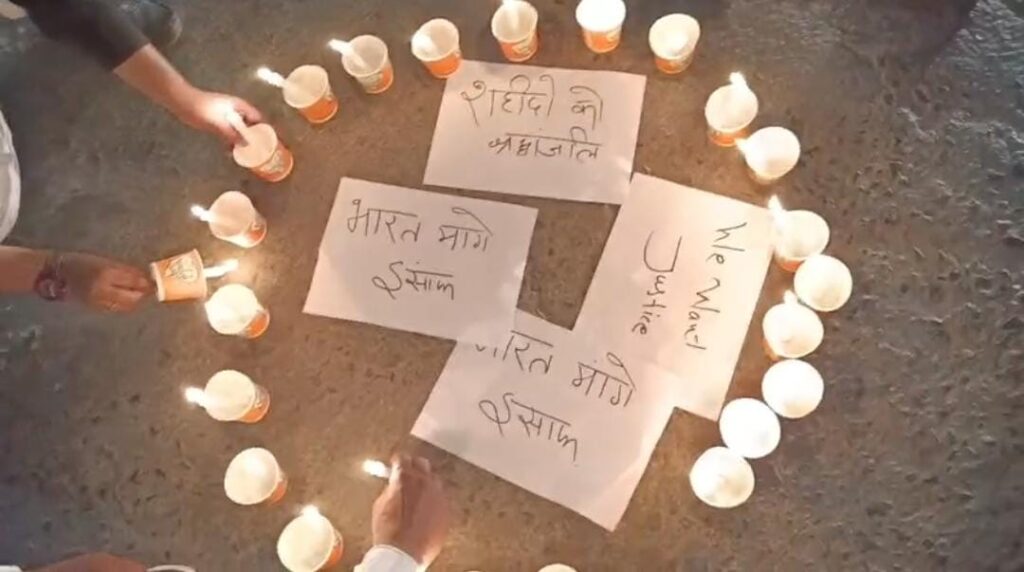 शहीदो को
श्रद्धांजलि
भारत मांगे
इंसाफ
We Want
Justice
भारत मांगे
इंसाफ